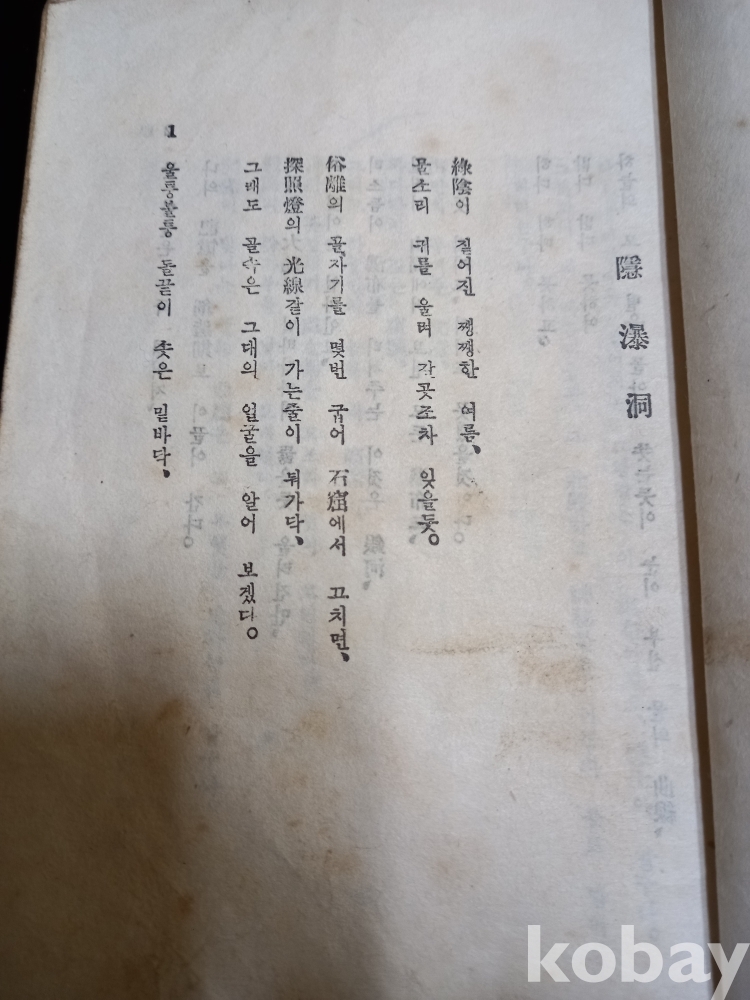 隱瀑洞
綠陰이 짙어진 쨍쨍한 여름、
물소리 귀를 울려 갈곳조차 잊을듯。
俗離의 골자기를 몇번 굽어 石窟에서 끄치면、
探照燈의 光線같이 가는줄이 뛰가닥、
그래도 골속은 그대의 얼굴을 알어 보겠다。
울퉁불퉁 돌끝이 솟은 밑바닥、
1
kobay